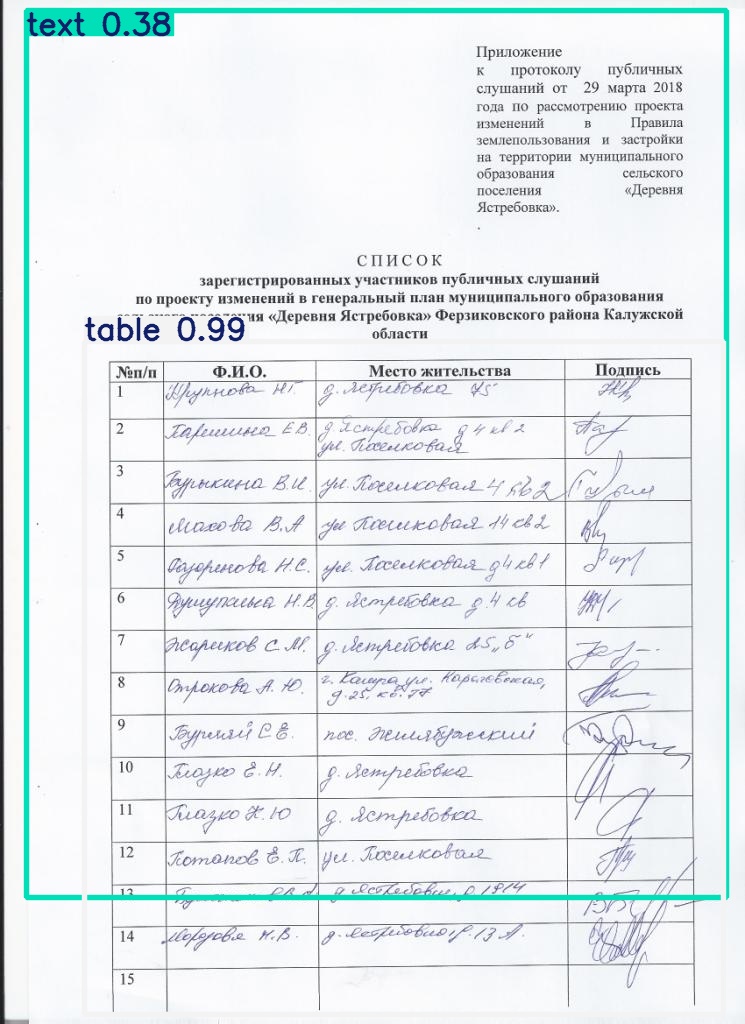 text 0.38
Приложение
к протоколу публичных
слушаний от 29 марта 2018
года по рассмотрению проекта
изменений в Правила
землепользования и застройки
на территории муниципального
образования сельского
поселения «Деревня
Ястребовка».
СПИСОК
зарегистрированных участников публичных слушаний
по проекту изменений в генеральный план муниципального образования
«Деревня Ястребовка» Ферзиковского района Калужской
области
table 0.99
№п/п Ф.И.О. Место жительства Подпись
1 Н.Г. д. Ястребовка 75
2 Паршина Е.В. д Ястребовка д 4 кв 2
ул. Поселковая
3 Бурыкина В.И. ул. Поселковая 4 кв 2
4 Махова В.А ул Поселковая 14 кв 2
5 Н.С. ул. Поселковая д 4 кв 1
6 Н.В. д. Ястребовка д. 4 кв
7 Жариков С.М. д. Ястребовка 25 „б"
8 Строкова А.Ю. г. Калуга, ул.
д. 25, кв. 77
9 С Е. пос. Желябужский
10 Глазко Е.Н. д. Ястребовка
11 Глазко Н.Ю д. Ястребовка
12 Потапов Е.П. ул. Поселковая
13
14 Н.В. 13 А.
15